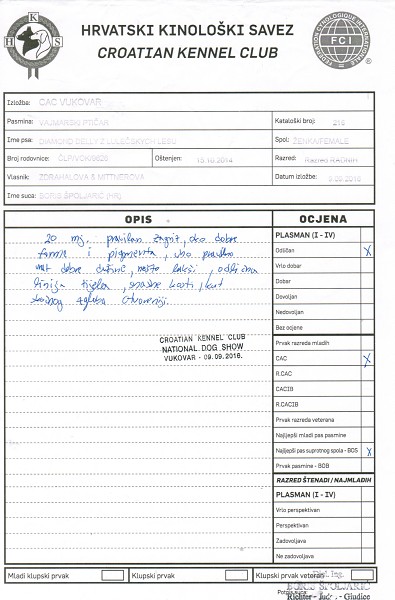 K
H S
HRVATSKI KINOLOŠKI SAVEZ
CROATIAN KENNEL CLUB
FCI
FEDERATION CYNOLOGIQUE INTERNATIONALE
®
Izložba: CAC VUKOVAR
Pasmina: VAJMARSKI PTIČAR
Kataloški broj: 216
Ime psa: DIAMOND DELLY Z LULEČSKÝCH LESŮ
Spol: ŽENKA/FEMALE
Broj rodovnice:
Oštenjen: 10.10.2014
Razred: Razred RADNIH
Vlasnik: ZDRAHALOVA & MITTNEROVA
Datum izložbe: 9.09.2016
Ime suca: BORIS ŠPOLJARIĆ (HR)
OPIS
OCJENA
20 mj. pravilan zagriz, oko dobre
forme i pigmenta, uho pravilno
vrat dobre dužine, nešto lakši, odlična
linija tijela, snažne kosti, kut
skočnog zgloba otvoreniji.
CROATIAN KENNEL CLUB
NATIONAL DOG SHOW
VUKOVAR - 09.09.2016.
PLASMAN (I - IV)
Odličan X
Vrlo dobar
Dobar
Dovoljan
Nedovoljan
Bez ocjene
Prvak razreda mladih
CAC X
R.CAC
CACIB
R.CACIB
Prvak razreda veterana
Najljepši mladi pas pasmine
Najljepši pas suprotnog spola - BOS X
Prvak pasmine - BOB
RAZRED ŠTENADI / NAJMLAĐIH
PLASMAN (I - IV)
Vrlo perspektivan
Perspektivan
Zadovoljava
Ne zadovoljava
Mladi klupski prvak
Klupski prvak
Klupski prvak veteran
Dipl. Ing.
BORIS ŠPOLJARIĆ
Potpis suca:
Richter - Judge - Giudice